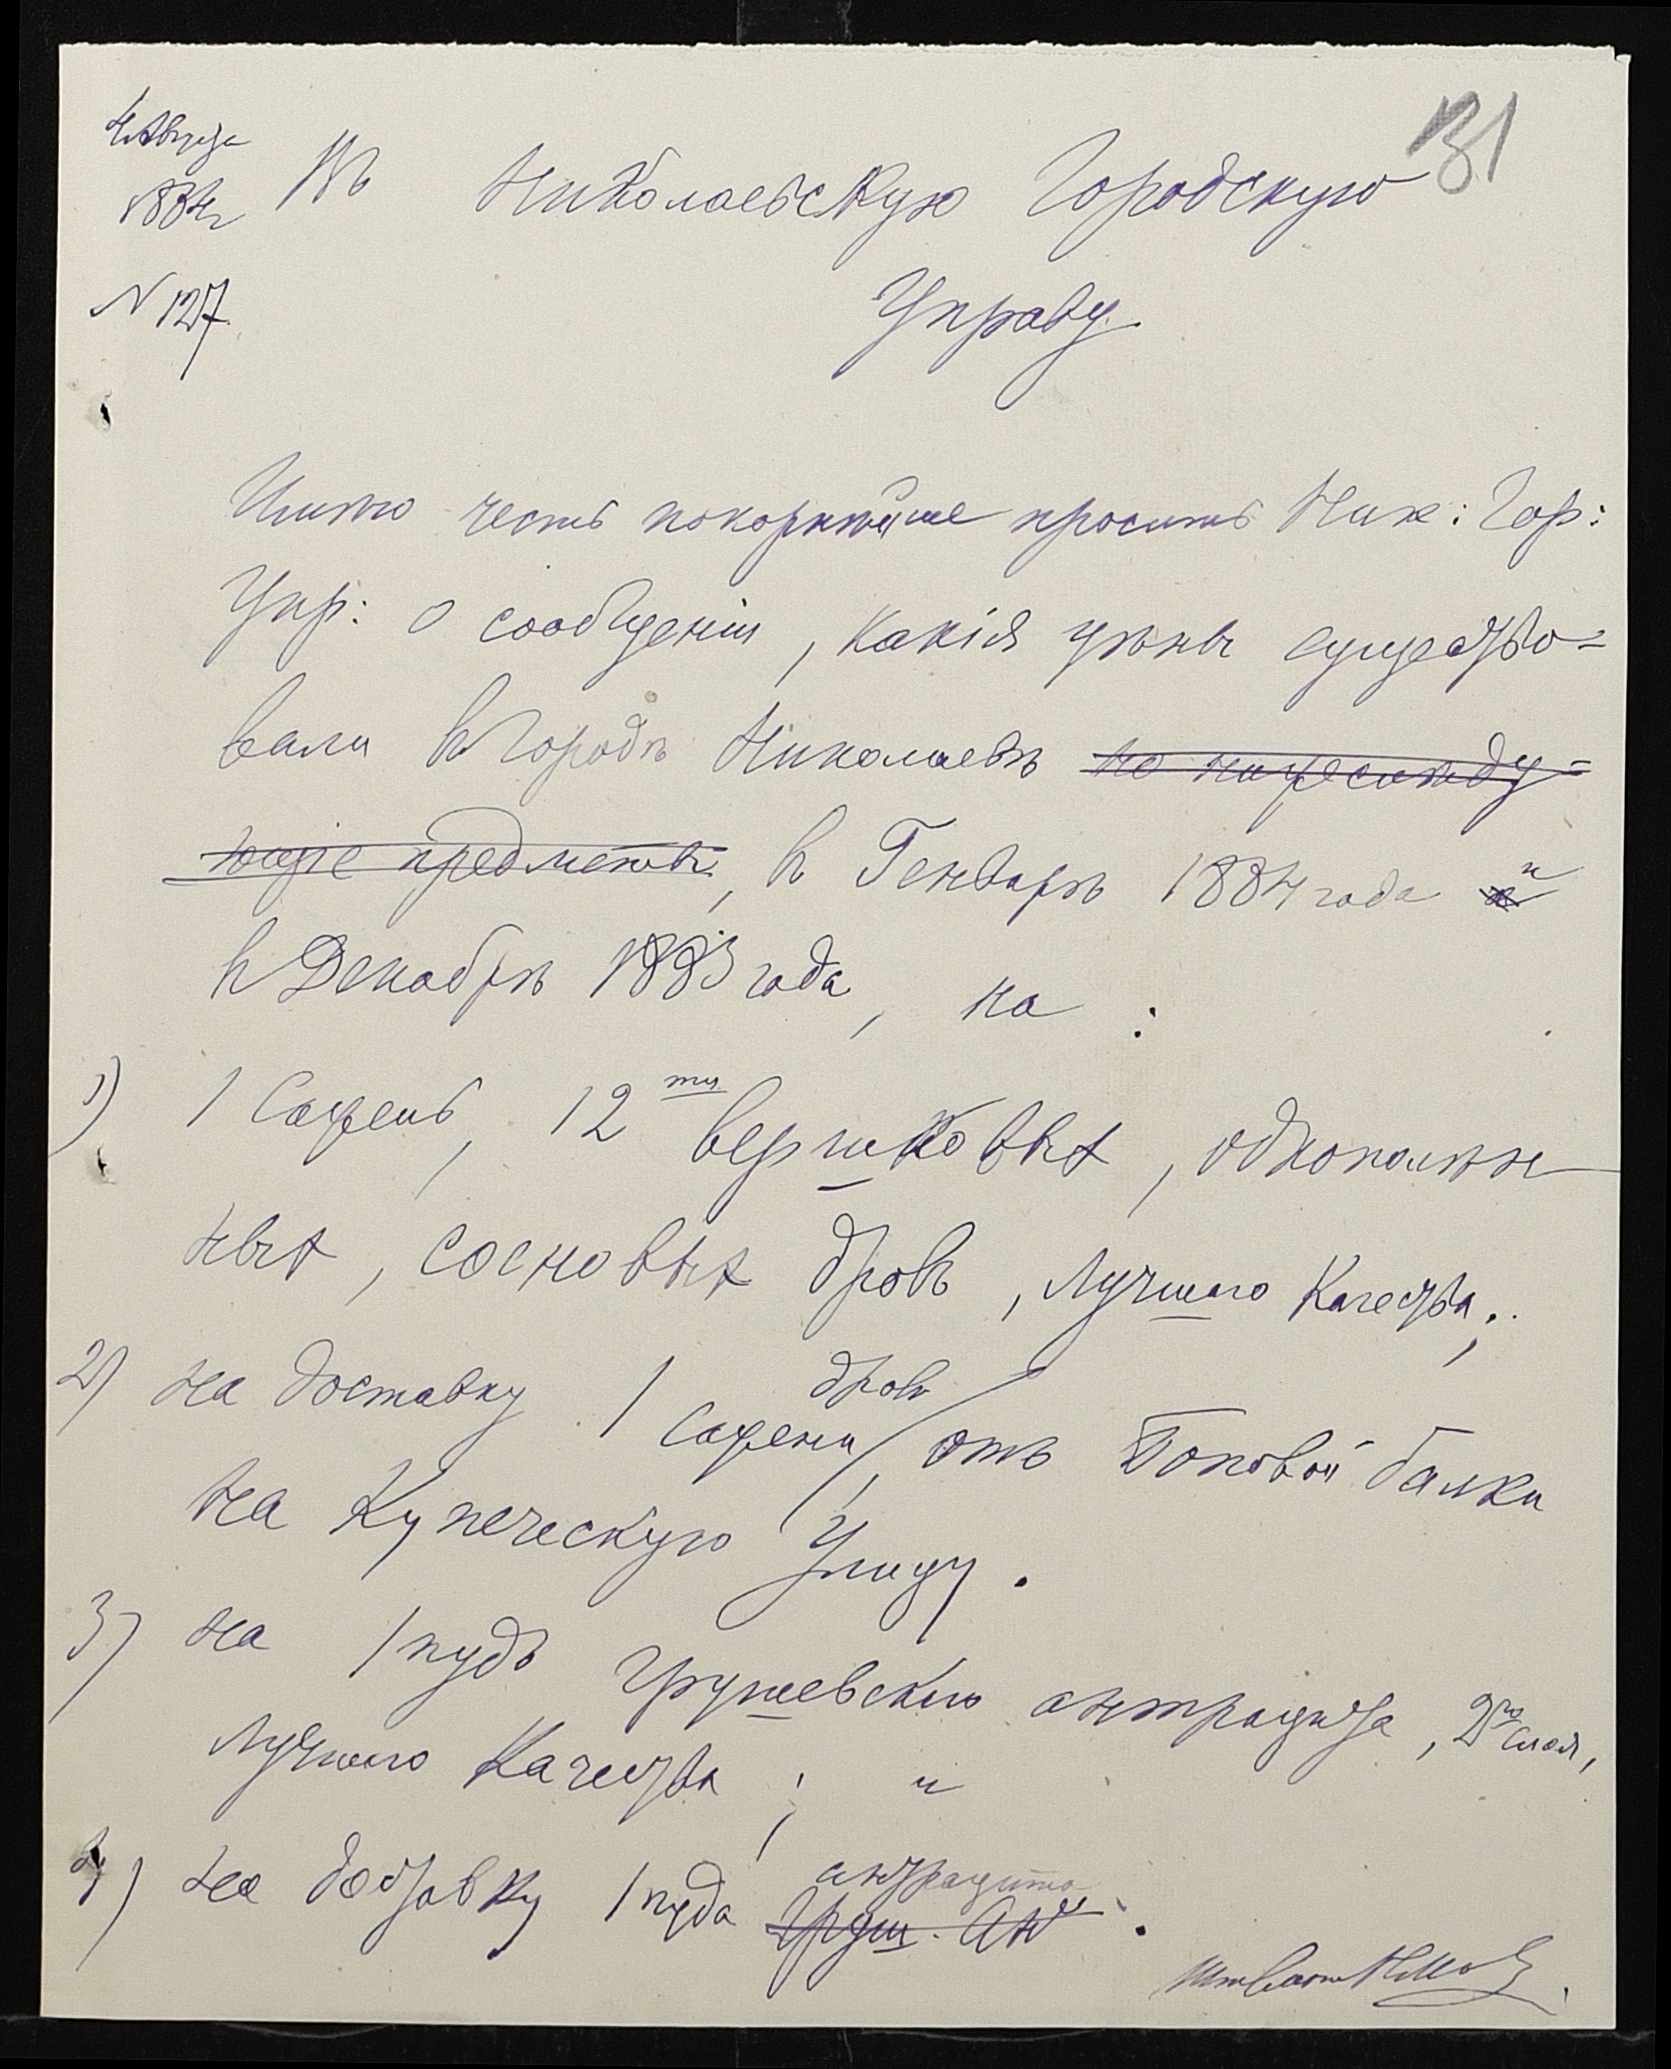 4 Августа
1884 г
N 127.
31
Въ Николаевскую Городскую
Управу.
Имѣю честь покорнѣйше просить Ник: Гор:
Упр: о сообщеніи, какія цѣны существо=
вали въ городѣ Николаевѣ на нижеслѣду=
ющіе предметы, въ Генварѣ 1884 года и
въ Декабрѣ 1883 года, на:
1) 1 Сажень, 12ти вершковыхъ, однополѣн
ныхъ, сосновыхъ дровъ, лучшаго качества;
2) на доставку 1 сажени дровъ, отъ Поповой балки
на Купеческую Улицу.
3) на 1 пудъ грушевскаго антрацита, 2го слоя,
лучшаго качества; и
4) на доставку 1 пуда антрацита
Груш. Ан.